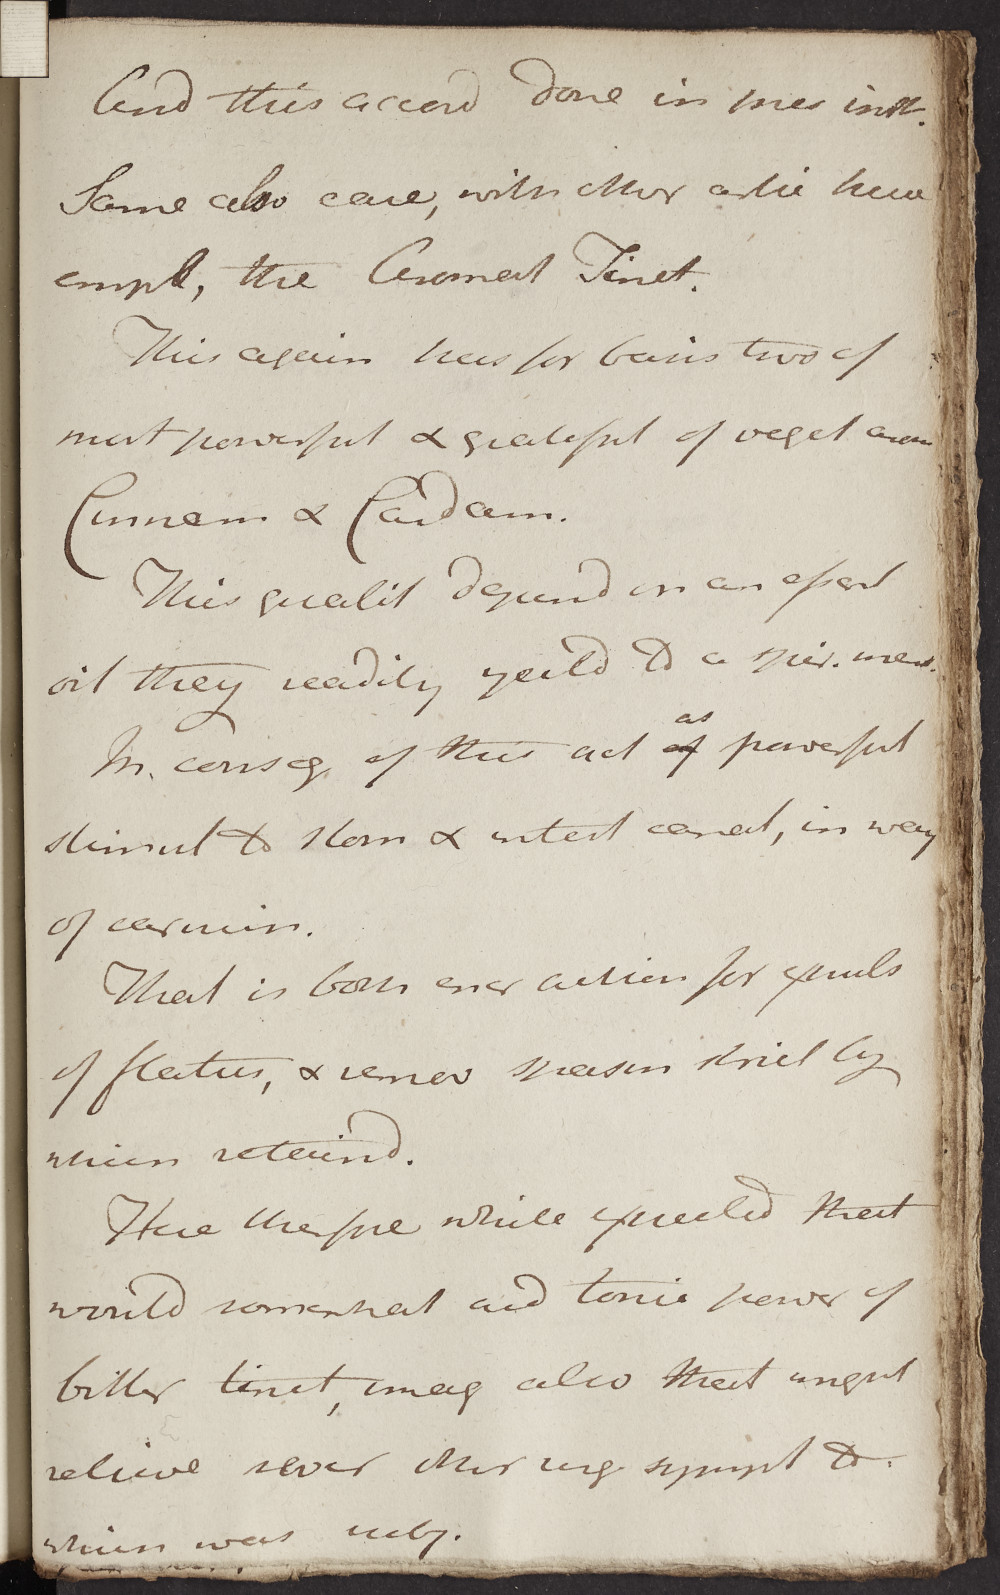 And this accord done in pres inst.
Same also case, with other artic here
empl, the Aromat Tinct.
This again has for basis two of
most powerful & grateful of veget arom
Cinnam & Cardam.
This qualit depend on an essent
oil they readily yeild to a spir. men.
In conseq of this act of as powerful
stimul to stom & intest canal, in way
of carmin.
That is both encr action for expuls
of flatus, & remov spasm strict by
which retaind.
Here therfore while expected that
would somewhat aid tonic power of
bitter tinct, imag also that might
relieve sever other urg sympt to
which was subj.